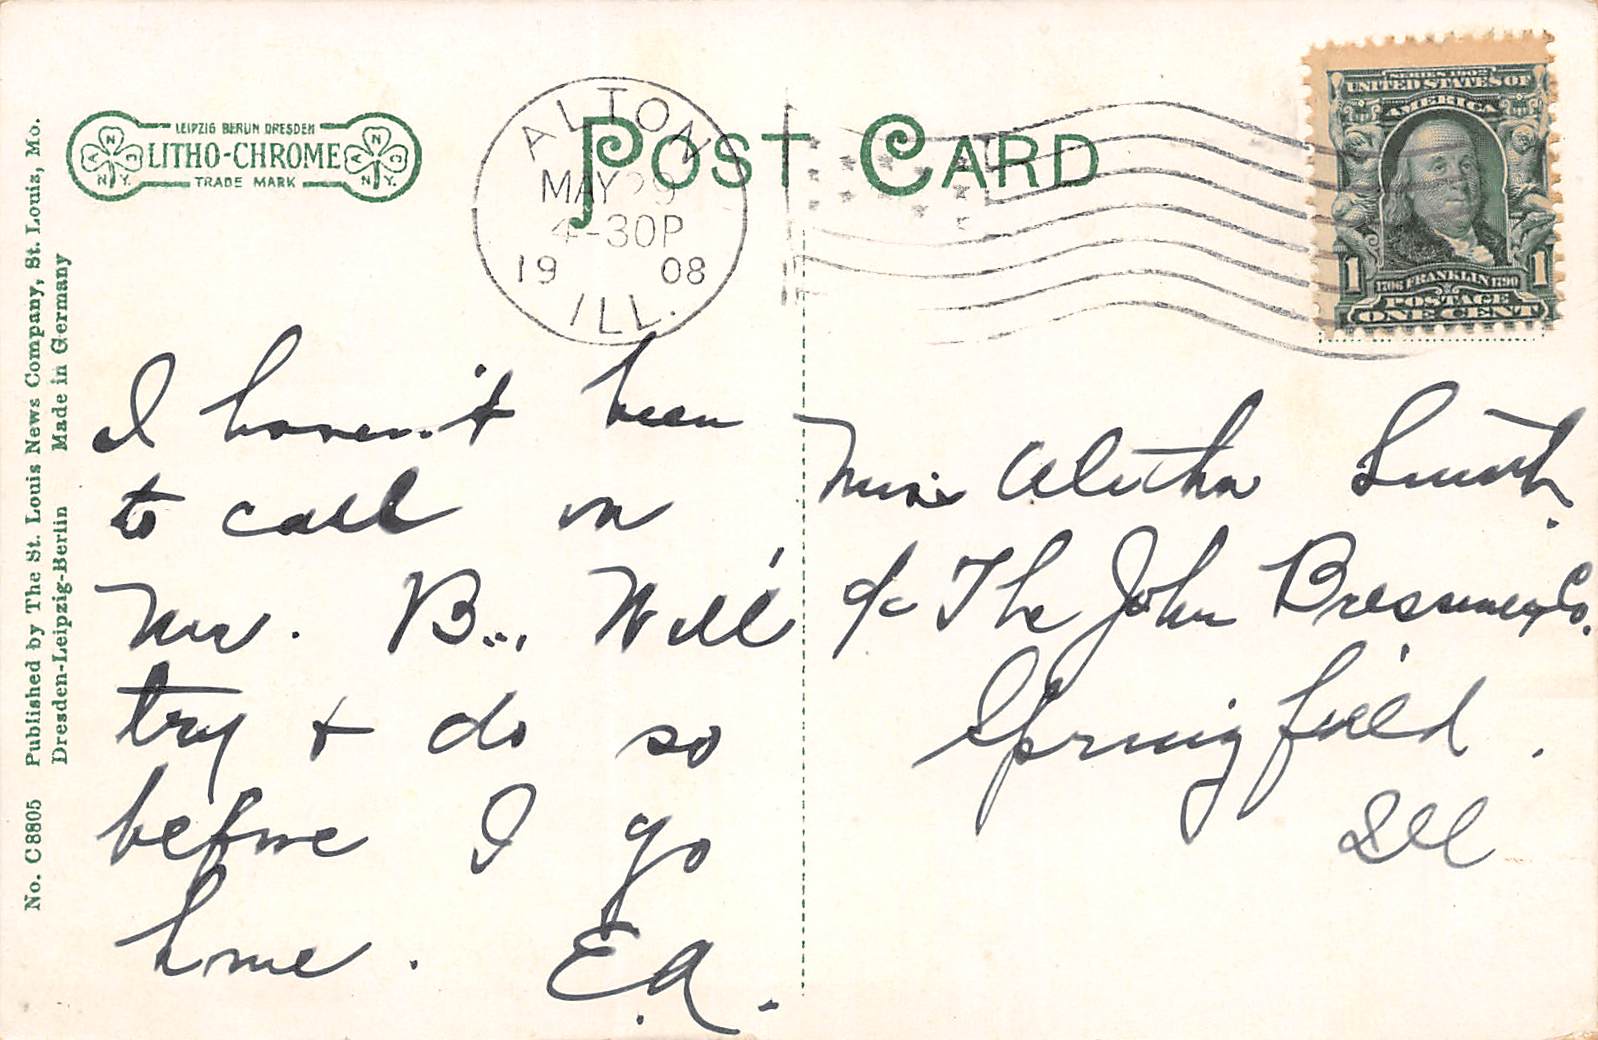 No. C8805 Published by The St. Louis News Company, St. Louis, Mo.
Dresden-Leipzig-Berlin Made in Germany
LEIPZIG BERLIN DRESDEN
LITHO-CHROME
TRADE MARK
A N C
N.Y.
A N C
N.Y.
POST CARD
ALTON
MAY 29
4-30P
19 08
ILL.
SERIES 1902
UNITED STATES OF
AMERICA
1 1
1706 FRANKLIN 1790
POSTAGE
ONE CENT
I haven't been
to call on
Mr. B... Will
try + do so
before I go
home. E.A.
Miss Aletha Smith.
c/o The John Bressmer Co.
Springfield.
Ill